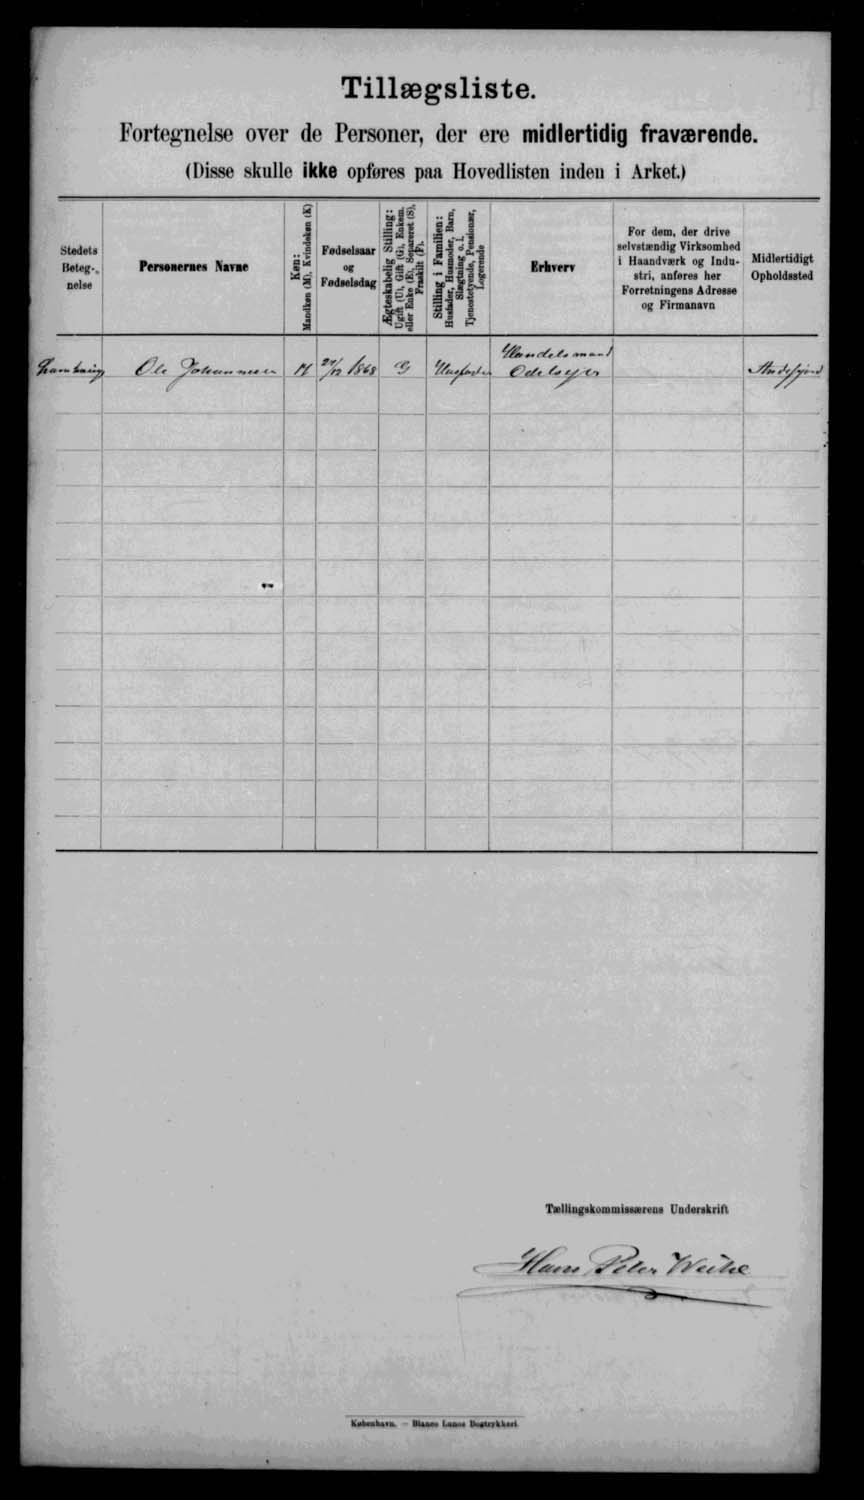 Tillægsliste.
Fortegnelse over de Personer, der ere midlertidig fraværende.
(Disse skulle ikke opføres paa Hovedlisten inden i Arket.)
Stedets
Beteg-
nelse
Personernes Navne
Køn:
Mandkøn (M), Kvindekøn (K)
Fødselsaar
og
Fødselsdag
Ægteskabelig Stilling:
Ugift (U), Gift (G), Enkem.
eller Enke (E), Separeret (S),
Fraskilt (F).
Stilling i Familien:
Husfader, Husmoder, Barn,
Slægtning o. l.
Tjenestetyende, Pensionær,
Logerende
Erhverv
For dem, der drive
selvstændig Virksomhed
i Haandværk og Indu-
stri, anføres her
Forretningens Adresse
og Firmanavn
Midlertidigt
Opholdssted
Ole Johannesen M /12 1868 G Husfader Handelsmand
Odelsejer
Tællingskommissærens Underskrift
Hans Peter Weihe
København. — Bianco Lunos Bogtrykkeri.